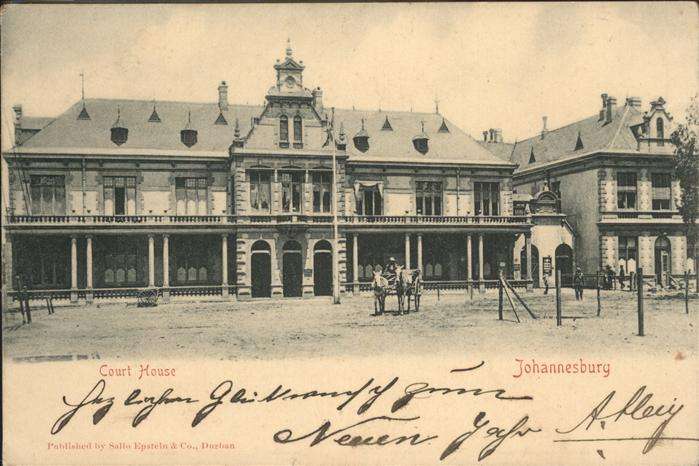 Court House
Johannesburg
Herzlichen Glückwunsch zum
Neuen Jahr
Published by Sallo Epstein & Co., Durban